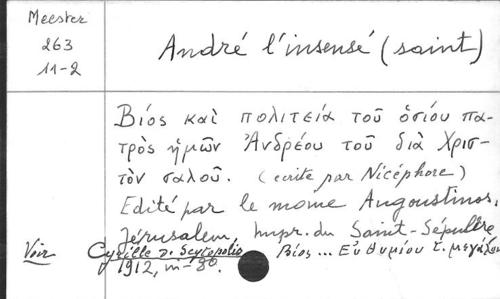 Meester
263
11-2
André l'insensé (saint)
Βίος καὶ πολιτεία τοῦ ὁσίου πα-
τρὸς ἡμῶν Ἀνδρέου τοῦ διὰ Χρισ-
τὸν σαλοῦ. (écrite par Nicéphore)
Edité par le moine Augoustinos,
Jérusalem, Impr. du Saint-Sépulcre
Voir Cyrille D. Scytopolis Βίος... Εὐθυμίου τ. μεγάλου
1912, in-8°.